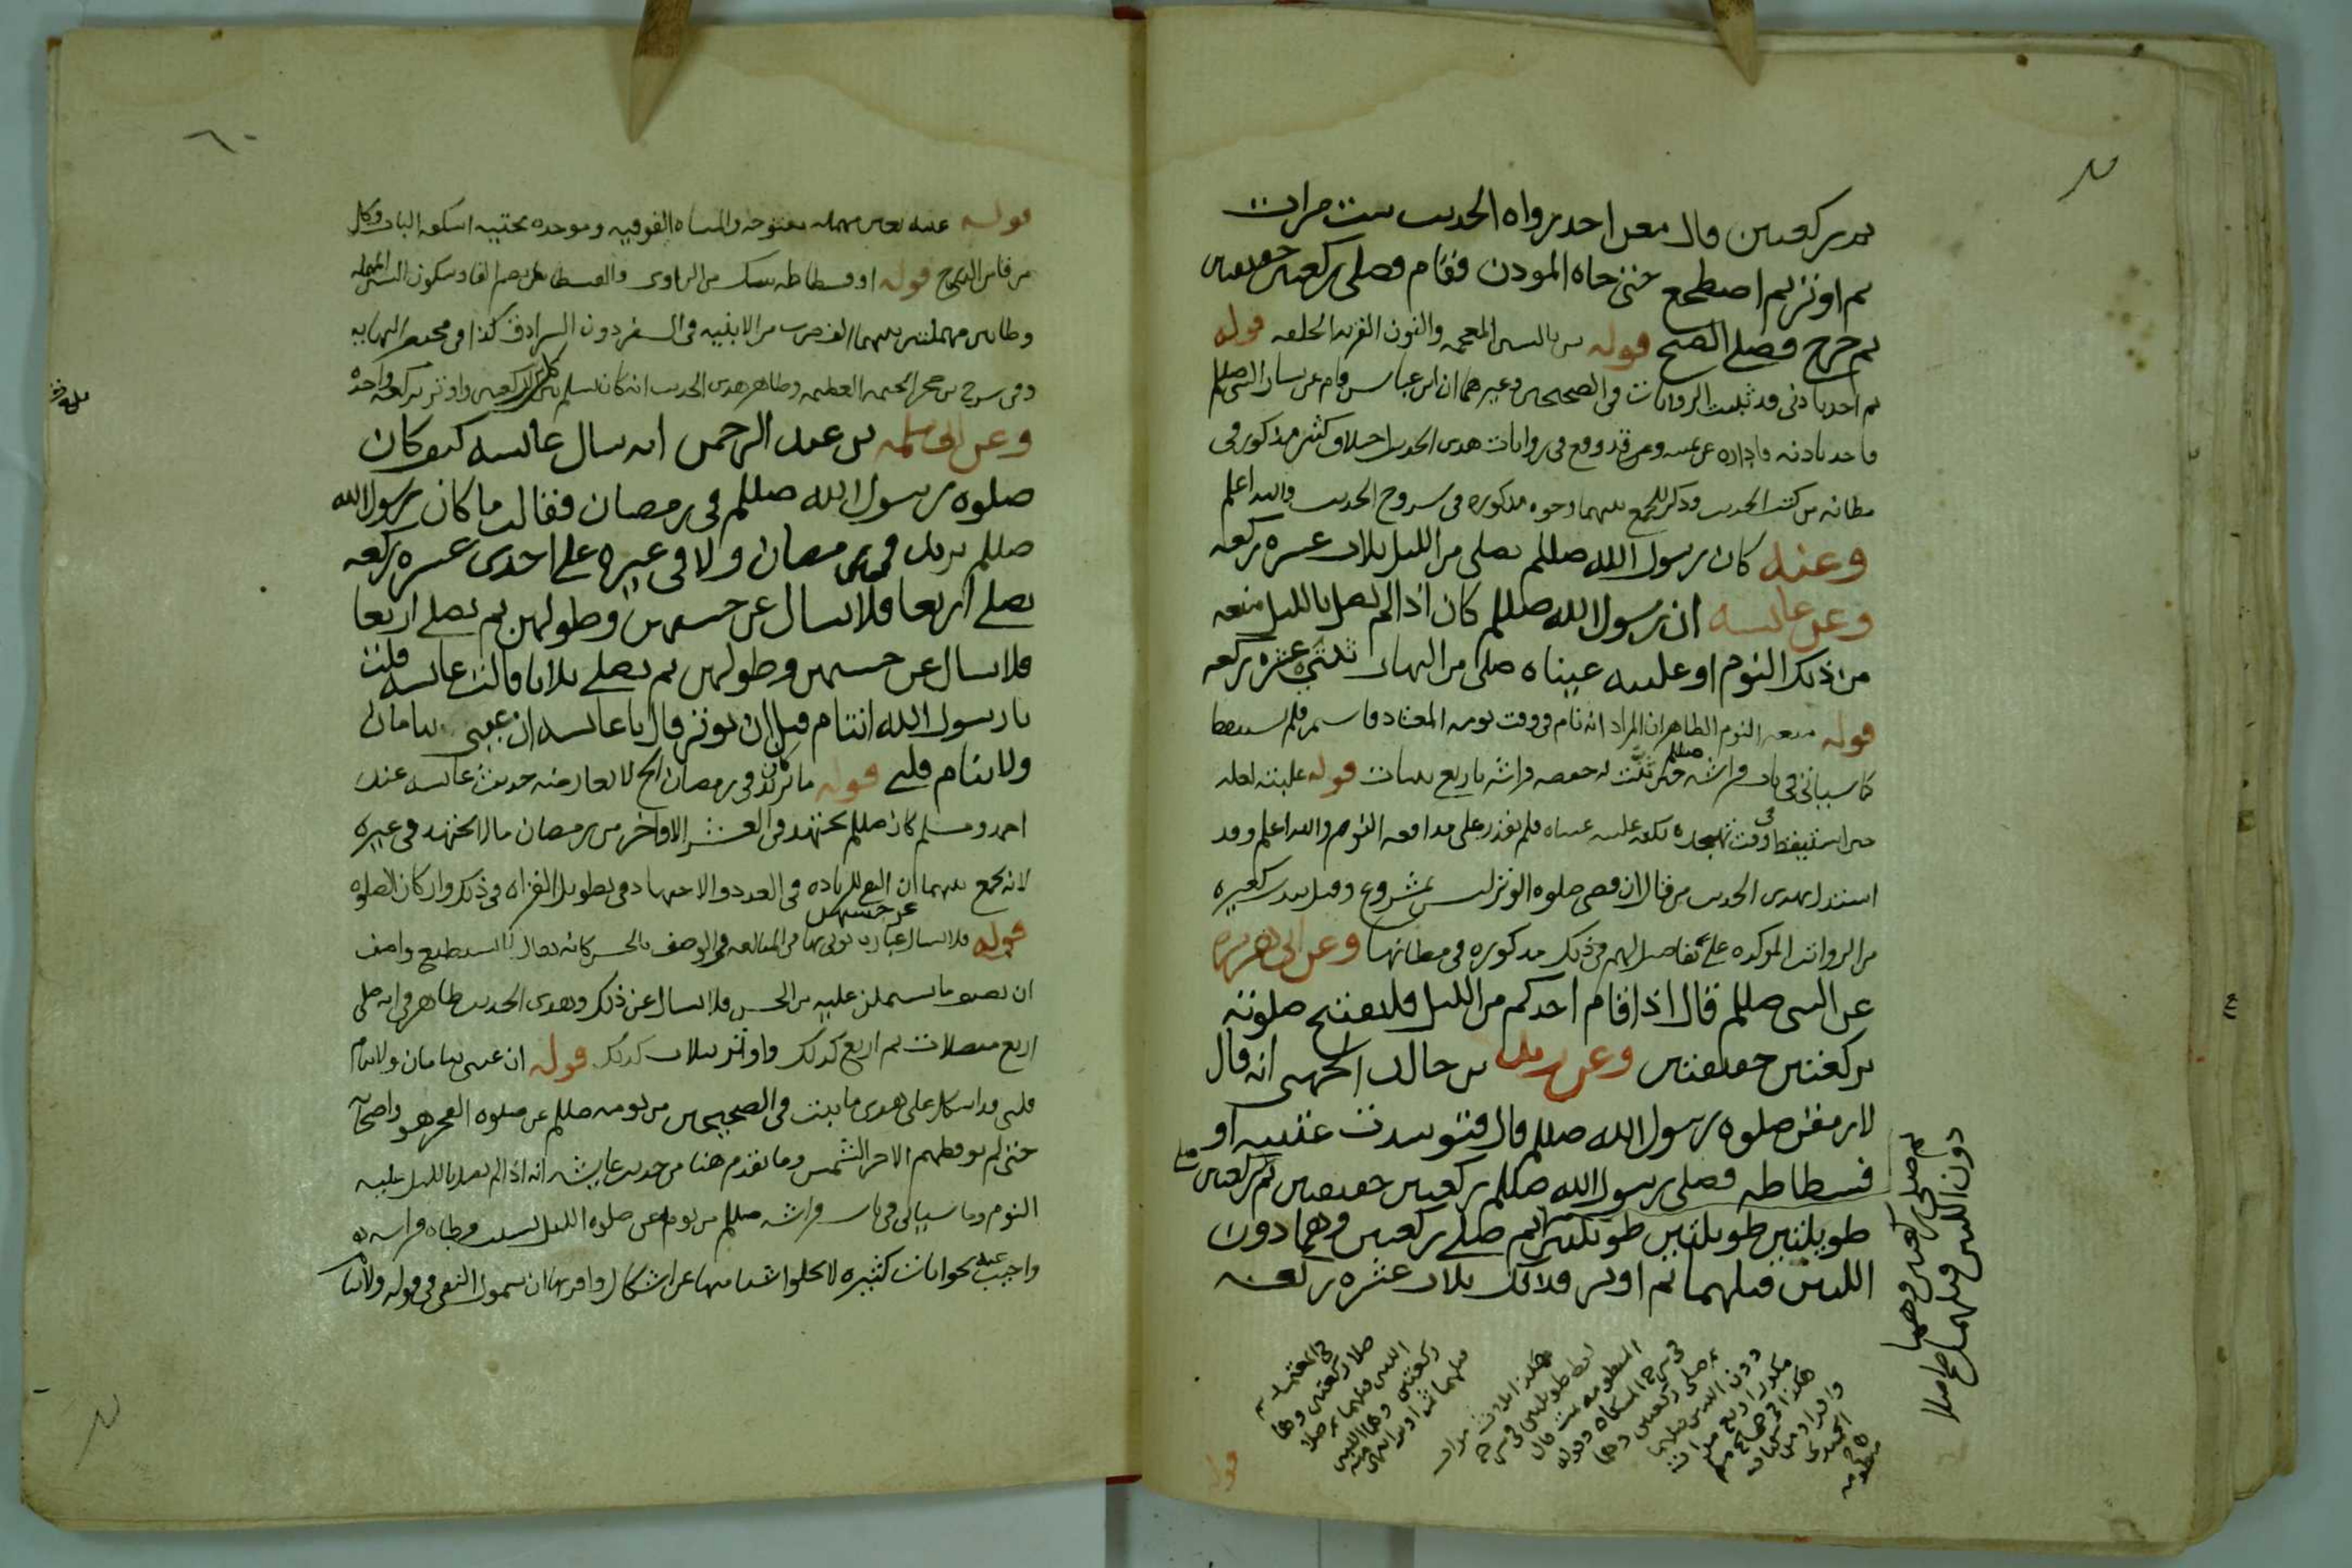 ثم ركعتين قال معن احد رواه الحديث ست مرات
ثم اوتر ثم اضطجع حتى جاه الموذن فقام فصلى ركعتين خفيفتين
ثم خرج فصلى الصبح قوله شن بالشين المعجمه والنون القربه الخلقه قوله
ثم اخذ باذنى قد ثبتت الروايات في الصحيحين وغيرهما ان ابن عباس قام عن يسار النبي صللم
فاخذ باذنه فاداره عن يمينه وقد وقع في روايات هذى الحديث اختلاف كثير مذكور في
مظانه من كتب الحديث وذكر للجمع بينهما وجوه مذكوره في شروح الحديث والله اعلم
وعنه كان رسول الله صللم يصلى من الليل ثلاث عشره ركعه
وعن عائشه ان رسول الله صللم كان اذا لم يصل بالليل منعه
من ذلك النوم او غلبته عيناه صلى من النهار ثنتي عشره ركعه
قوله منعه النوم الظاهر ان المراد انه نام في وقت نومه المعتاد فاستمر فلم يستيقظ
كما سياتي في باب فراشه صللم حين ثنت له حفصه فراشه باربع ثنيات قوله غلبته لعله
حين استيقظ في وقت تهجده لكنه غلبته عيناه فلم يقدر على مدافعه النوم والله اعلم وقد
استدل بهذى الحديث من قال ان قضى صلوه الوتر ليس بمشروع وقيل يندب لغيره
من الرواتب الموكده على تفاصيل لهم في ذلك مذكوره في مظانها وعن ابي هريره
عن النبي صللم قال اذا قام احدكم من الليل فليفتتح صلوته
بركعتين خفيفتين وعن زيد بن خالد الجهني انه قال
لارمقن صلوه رسول الله صللم قال فتوسدت عتبته او
فسطاطه فصلى رسول الله صللم ركعتين خفيفتين ثم صلى ركعتين
طويلتين طويلتين طويلتين ثم صلى ركعتين وهما دون
اللتين قبلهما ثم اوتر فذلك ثلاث عشره ركعه
ثم صلى ركعتين وهما
دون اللتين قبلهما صح اصلا
قوله
٦٠
قوله عتبته بعين مهمله مفتوحه والمثناه الفوقيه وموحده تحتيه اسكفه الباب وكل
مرقاه من الدرج قوله او فسطاطه بشك من الراوى والفسطاط بضم الفا وسكون السين المهمله
وطاين مهملتين بينهما الف ضرب من الابنيه في السفر دون السرادق كذا في مختصر النهايه
وفي شرح بن حجر الخيمه العظيمه وظاهر هذى الحديث انه كان يسلم بين كل ركعتين واوتر بركعه واحده
وعن ابي سلمه بن عبد الرحمن انه سال عائشه كيف كان
صلوه رسول الله صللم في رمضان فقالت ما كان رسول الله
صللم يزيد في رمضان ولا في غيره على احدى عشره ركعه
يصلى اربعا فلا تسال عن حسنهن وطولهن ثم يصلى اربعا
فلا تسال عن حسنهن وطولهن ثم يصلى ثلاثا قالت عائشه قلت
يا رسول الله اتنام قبل ان توتر قال يا عائشه ان عيني تنامان
ولا ينام قلبي قوله ما كان يزيد في رمضان الخ لا يعارضه حديث عائشه عند
احمد ومسلم كان صللم يجتهد في العشر الاواخر من رمضان مالا يجتهد في غيره
لانه يجمع بينهما ان النفى للزياده في العدد والاجتهاد في تطويل القراه في ذلك واركان الصلوه
قوله فلا تسال عن حسنهن عباره يوتى بها في المبالغه في الوصف بالحسن كانه يقال لا يستطيع واصف
ان يصف ما يشتملن عليه من الحسن فلا تسال عن ذلك وهذى الحديث ظاهر في انه صلى
اربع متصلات ثم اربع كذلك واوتر بثلاث كذلك قوله ان عيني تنامان ولا ينام
قلبي قد اشكل على هذى ما ثبت في الصحيحين من نومه صللم عن صلوه الفجر هو واصحابه
حتى لم يوقظهم الا حر الشمس وما تقدم هنا من حديث عايشه انه اذا لم يصل بالليل غلبه
النوم وما سياتي في باب فراشه صللم من نومه عن صلوه الليل لسبب وطاه فراشه به
واجيب عنه بجوابات كثيره لا تخلوا شيا منها عن اشكال واقربها ان شمول النفي في قوله ولا ينام